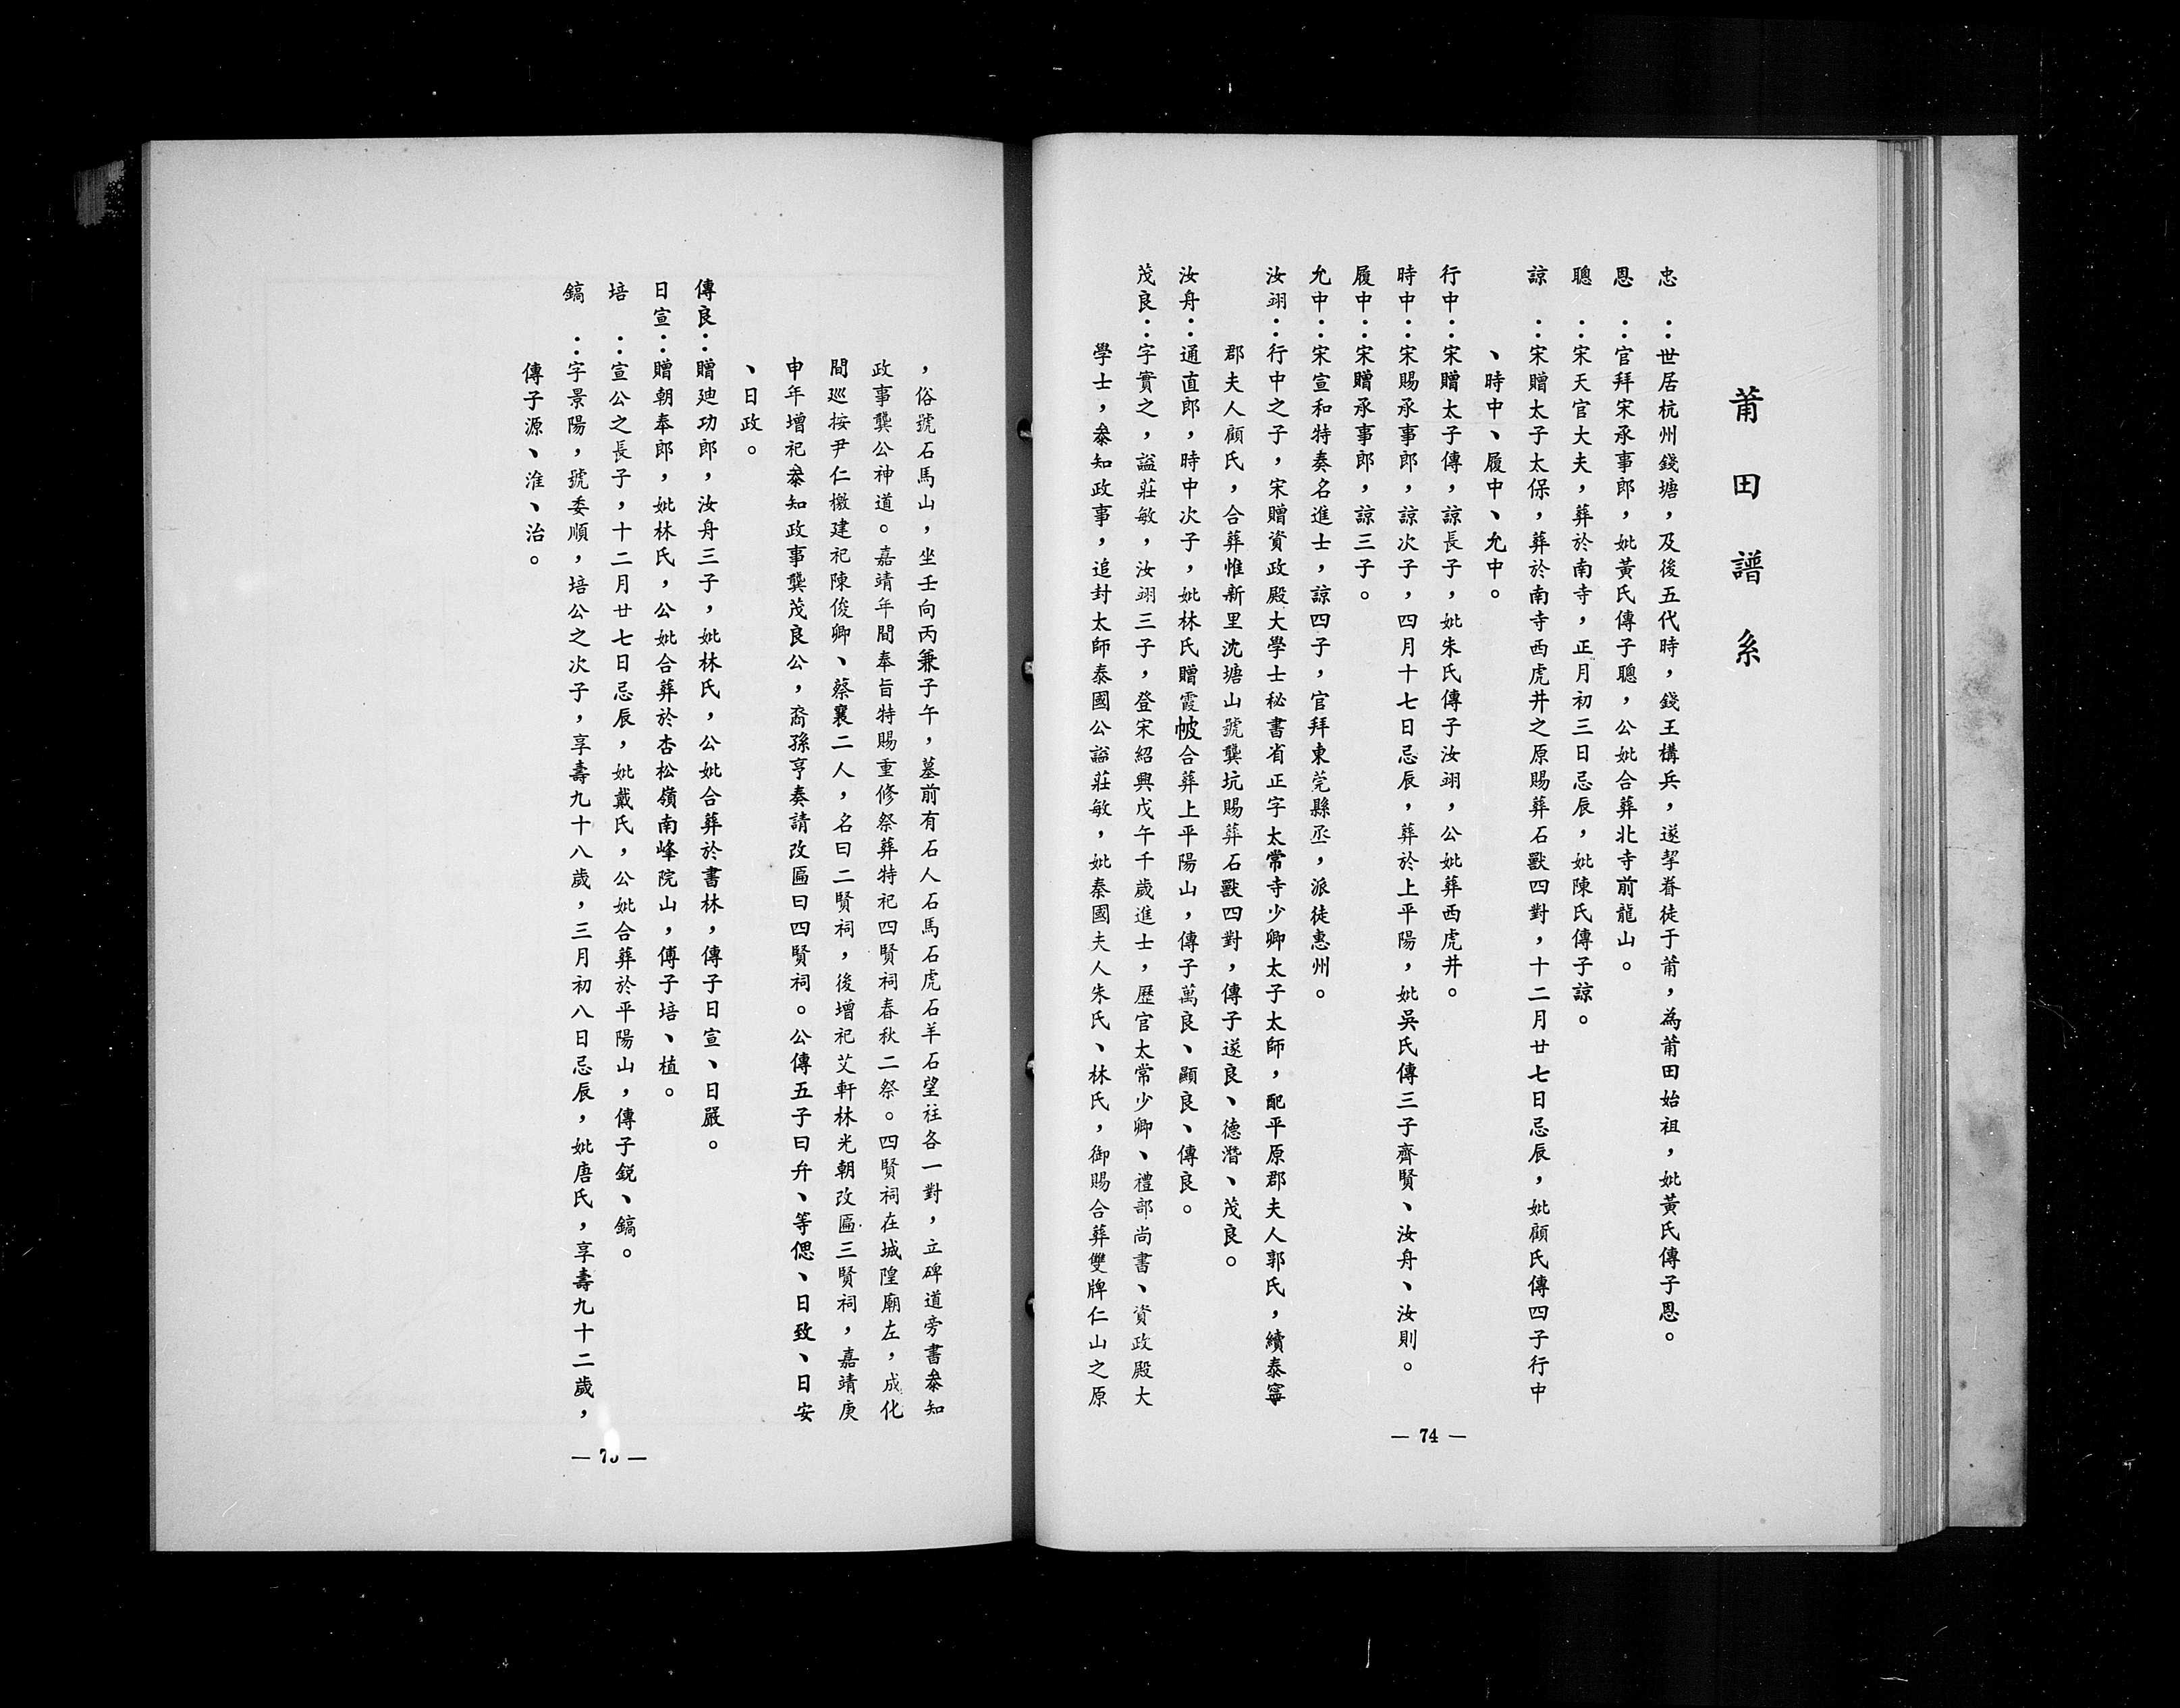 莆田譜系
忠　：世居杭州錢塘，及後五代時，錢王構兵，遂挈眷徒于莆，為莆田始祖，妣黃氏傳子恩。
恩　：官拜宋承事郎，妣黃氏傳子聰，公妣合葬北寺前龍山。
聰　：宋天官大夫，葬於南寺，正月初三日忌辰，妣陳氏傳子諒。
諒　：宋贈太子太保，葬於南寺西虎井之原賜葬石獸四對，十二月廿七日忌辰，妣顧氏傳四子行中
、時中、履中、允中。
行中：宋贈太子傅，諒長子，妣朱氏傳子汝翊，公妣葬西虎井。
時中：宋賜承事郎，諒次子，四月十七日忌辰，葬於上平陽，妣吳氏傳三子齊賢、汝舟、汝則。
履中：宋贈承事郎，諒三子。
允中：宋宣和特奏名進士，諒四子，官拜東莞縣丞，派徒惠州。
汝翊：行中之子，宋贈資政殿大學士秘書省正字太常寺少卿太子太師，配平原郡夫人郭氏，續泰寧
郡夫人顧氏，合葬惟新里沈塘山號龔坑賜葬石獸四對，傳子遂良、德潛、茂良。
汝舟：通直郎，時中次子，妣林氏贈霞帔合葬上平陽山，傳子萬良、顯良、傳良。
茂良：字實之，諡莊敏，汝翊三子，登宋紹興戊午千歲進士，歷官太常少卿、禮部尚書、資政殿大
學士，叅知政事，追封太師泰國公諡莊敏，妣秦國夫人朱氏、林氏，御賜合葬雙牌仁山之原
— 74 —
，俗號石馬山，坐壬向丙兼子午，墓前有石人石馬石虎石羊石望柱各一對，立碑道旁書叅知
政事龔公神道。嘉靖年間奉旨特賜重修祭葬特祀四賢祠春秋二祭。四賢祠在城隍廟左，成化
間巡按尹仁檄建祀陳俊卿、蔡襄二人，名曰二賢祠，後增祀艾軒林光朝改匾三賢祠，嘉靖庚
申年增祀叅知政事龔茂良公，裔孫亨奏請改匾曰四賢祠。公傳五子曰弁、等偲、日致、日安
、日政。
傳良：贈廸功郎，汝舟三子，妣林氏，公妣合葬於書林，傳子日宣、日嚴。
日宣：贈朝奉郎，妣林氏，公妣合葬於杏松嶺南峰院山，傳子培、植。
培　：宣公之長子，十二月廿七日忌辰，妣戴氏，公妣合葬於平陽山，傳子銳、鎬。
鎬　：字景陽，號委順，培公之次子，享壽九十八歲，三月初八日忌辰，妣唐氏，享壽九十二歲，
傳子源、淮、治。